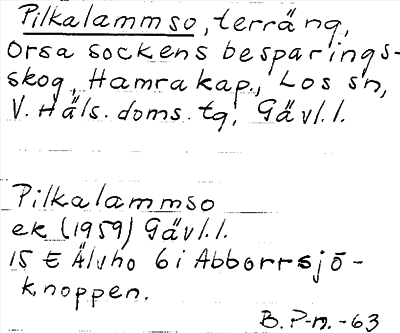 Pilkalammso, terräng,
Orsa sockens besparings-
skog, Hamra kap., Los sn,
V. Häls. doms. tg, Gävl. l.
Pilkalammso
ek (1959) Gävl. l.
15 E Älvho 6 i Abborrsjö-
knoppen.
B. P-n. -63